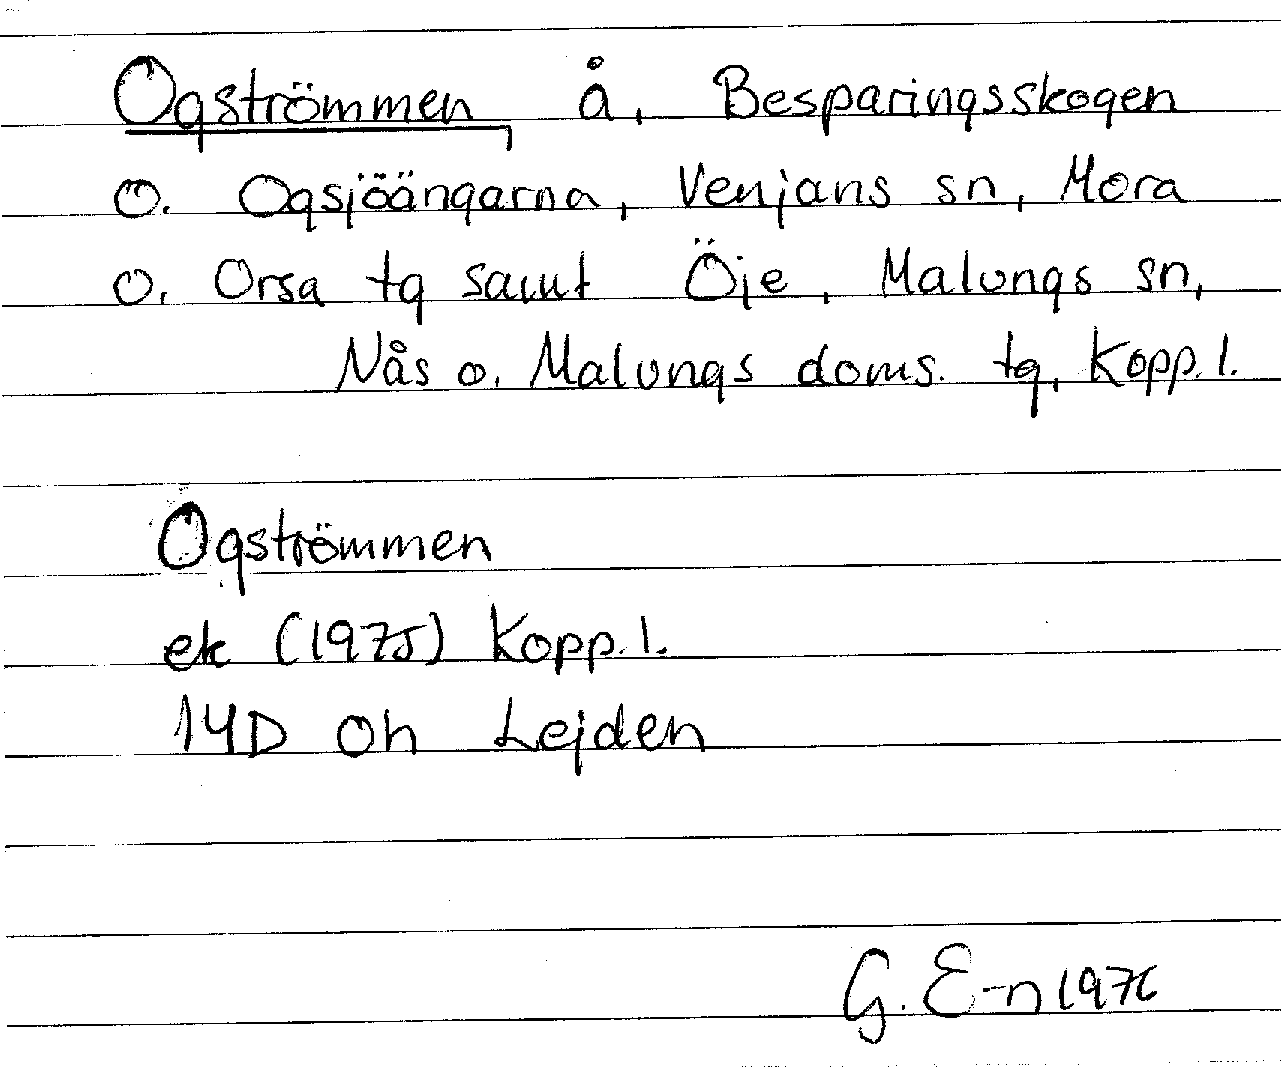 Ogströmmen, å, Besparingsskogen
o. Ogsjöängarna, Venjans sn, Mora
o. Orsa tg samt Öje, Malungs sn,
Nås o. Malungs doms. tg, Kopp. l.
Ogströmmen
ek (1975) Kopp. l.
14D Oh Lejden
G. E-n 1976